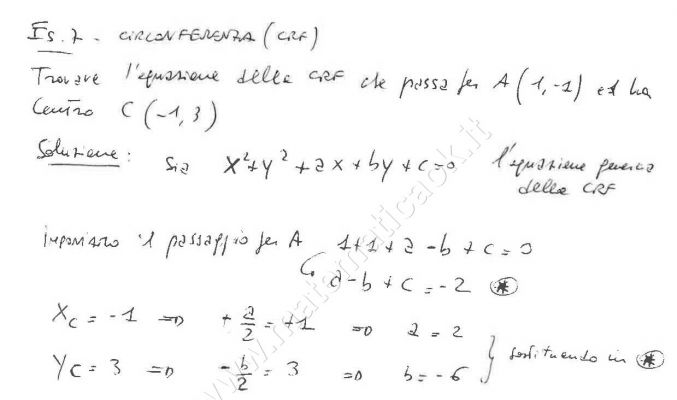 Es. 7 - CIRCONFERENZA (CRF)
Trovare l'equazione della CRF che passa per A (1,-1) ed ha
Centro C (-1,3)
Soluzione: Sia x²+y²+ax+by+c=0 l'equazione generica
della CRF
Imponiamo il passaggio per A 1+1+a-b+c=0
↳ a-b+c=-2 ⊛
Xc = -1 ⇒ + a/2 = +1 ⇒ a=2
Yc = 3 ⇒ - b/2 = 3 ⇒ b=-6 } sostituendo in ⊛
www.matematicaok.it